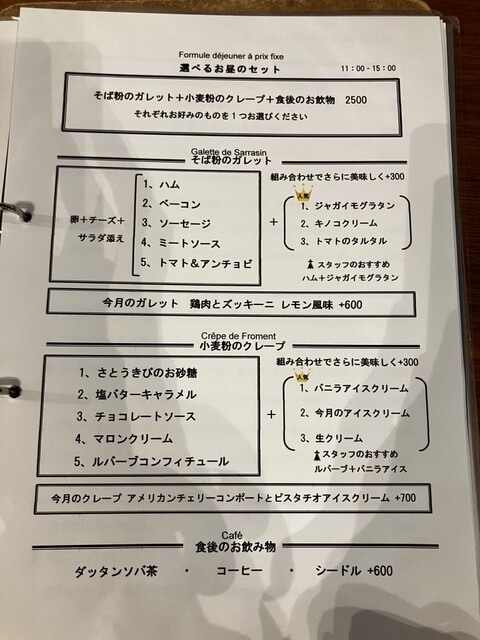 Formule déjeuner à prix fixe
選べるお昼のセット 11：00 - 15：00
そば粉のガレット＋小麦粉のクレープ＋食後のお飲物 2500
それぞれお好みのものを１つお選びください
Galette de Sarrasin
そば粉のガレット
組み合わせでさらに美味しく+300
卵＋チーズ＋
サラダ添え
1、ハム
2、ベーコン
3、ソーセージ
4、ミートソース
5、トマト＆アンチョビ
+
人気
1、ジャガイモグラタン
2、キノコクリーム
3、トマトのタルタル
スタッフのおすすめ
ハム＋ジャガイモグラタン
今月のガレット 鶏肉とズッキーニ レモン風味 +600
Crêpe de Froment
小麦粉のクレープ
組み合わせでさらに美味しく+300
1、さとうきびのお砂糖
2、塩バターキャラメル
3、チョコレートソース
4、マロンクリーム
5、ルバーブコンフィチュール
+
人気
1、バニラアイスクリーム
2、今月のアイスクリーム
3、生クリーム
スタッフのおすすめ
ルバーブ＋バニラアイス
今月のクレープ アメリカンチェリーコンポートとピスタチオアイスクリーム +700
Café
食後のお飲み物
ダッタンソバ茶 ・ コーヒー ・ シードル +600